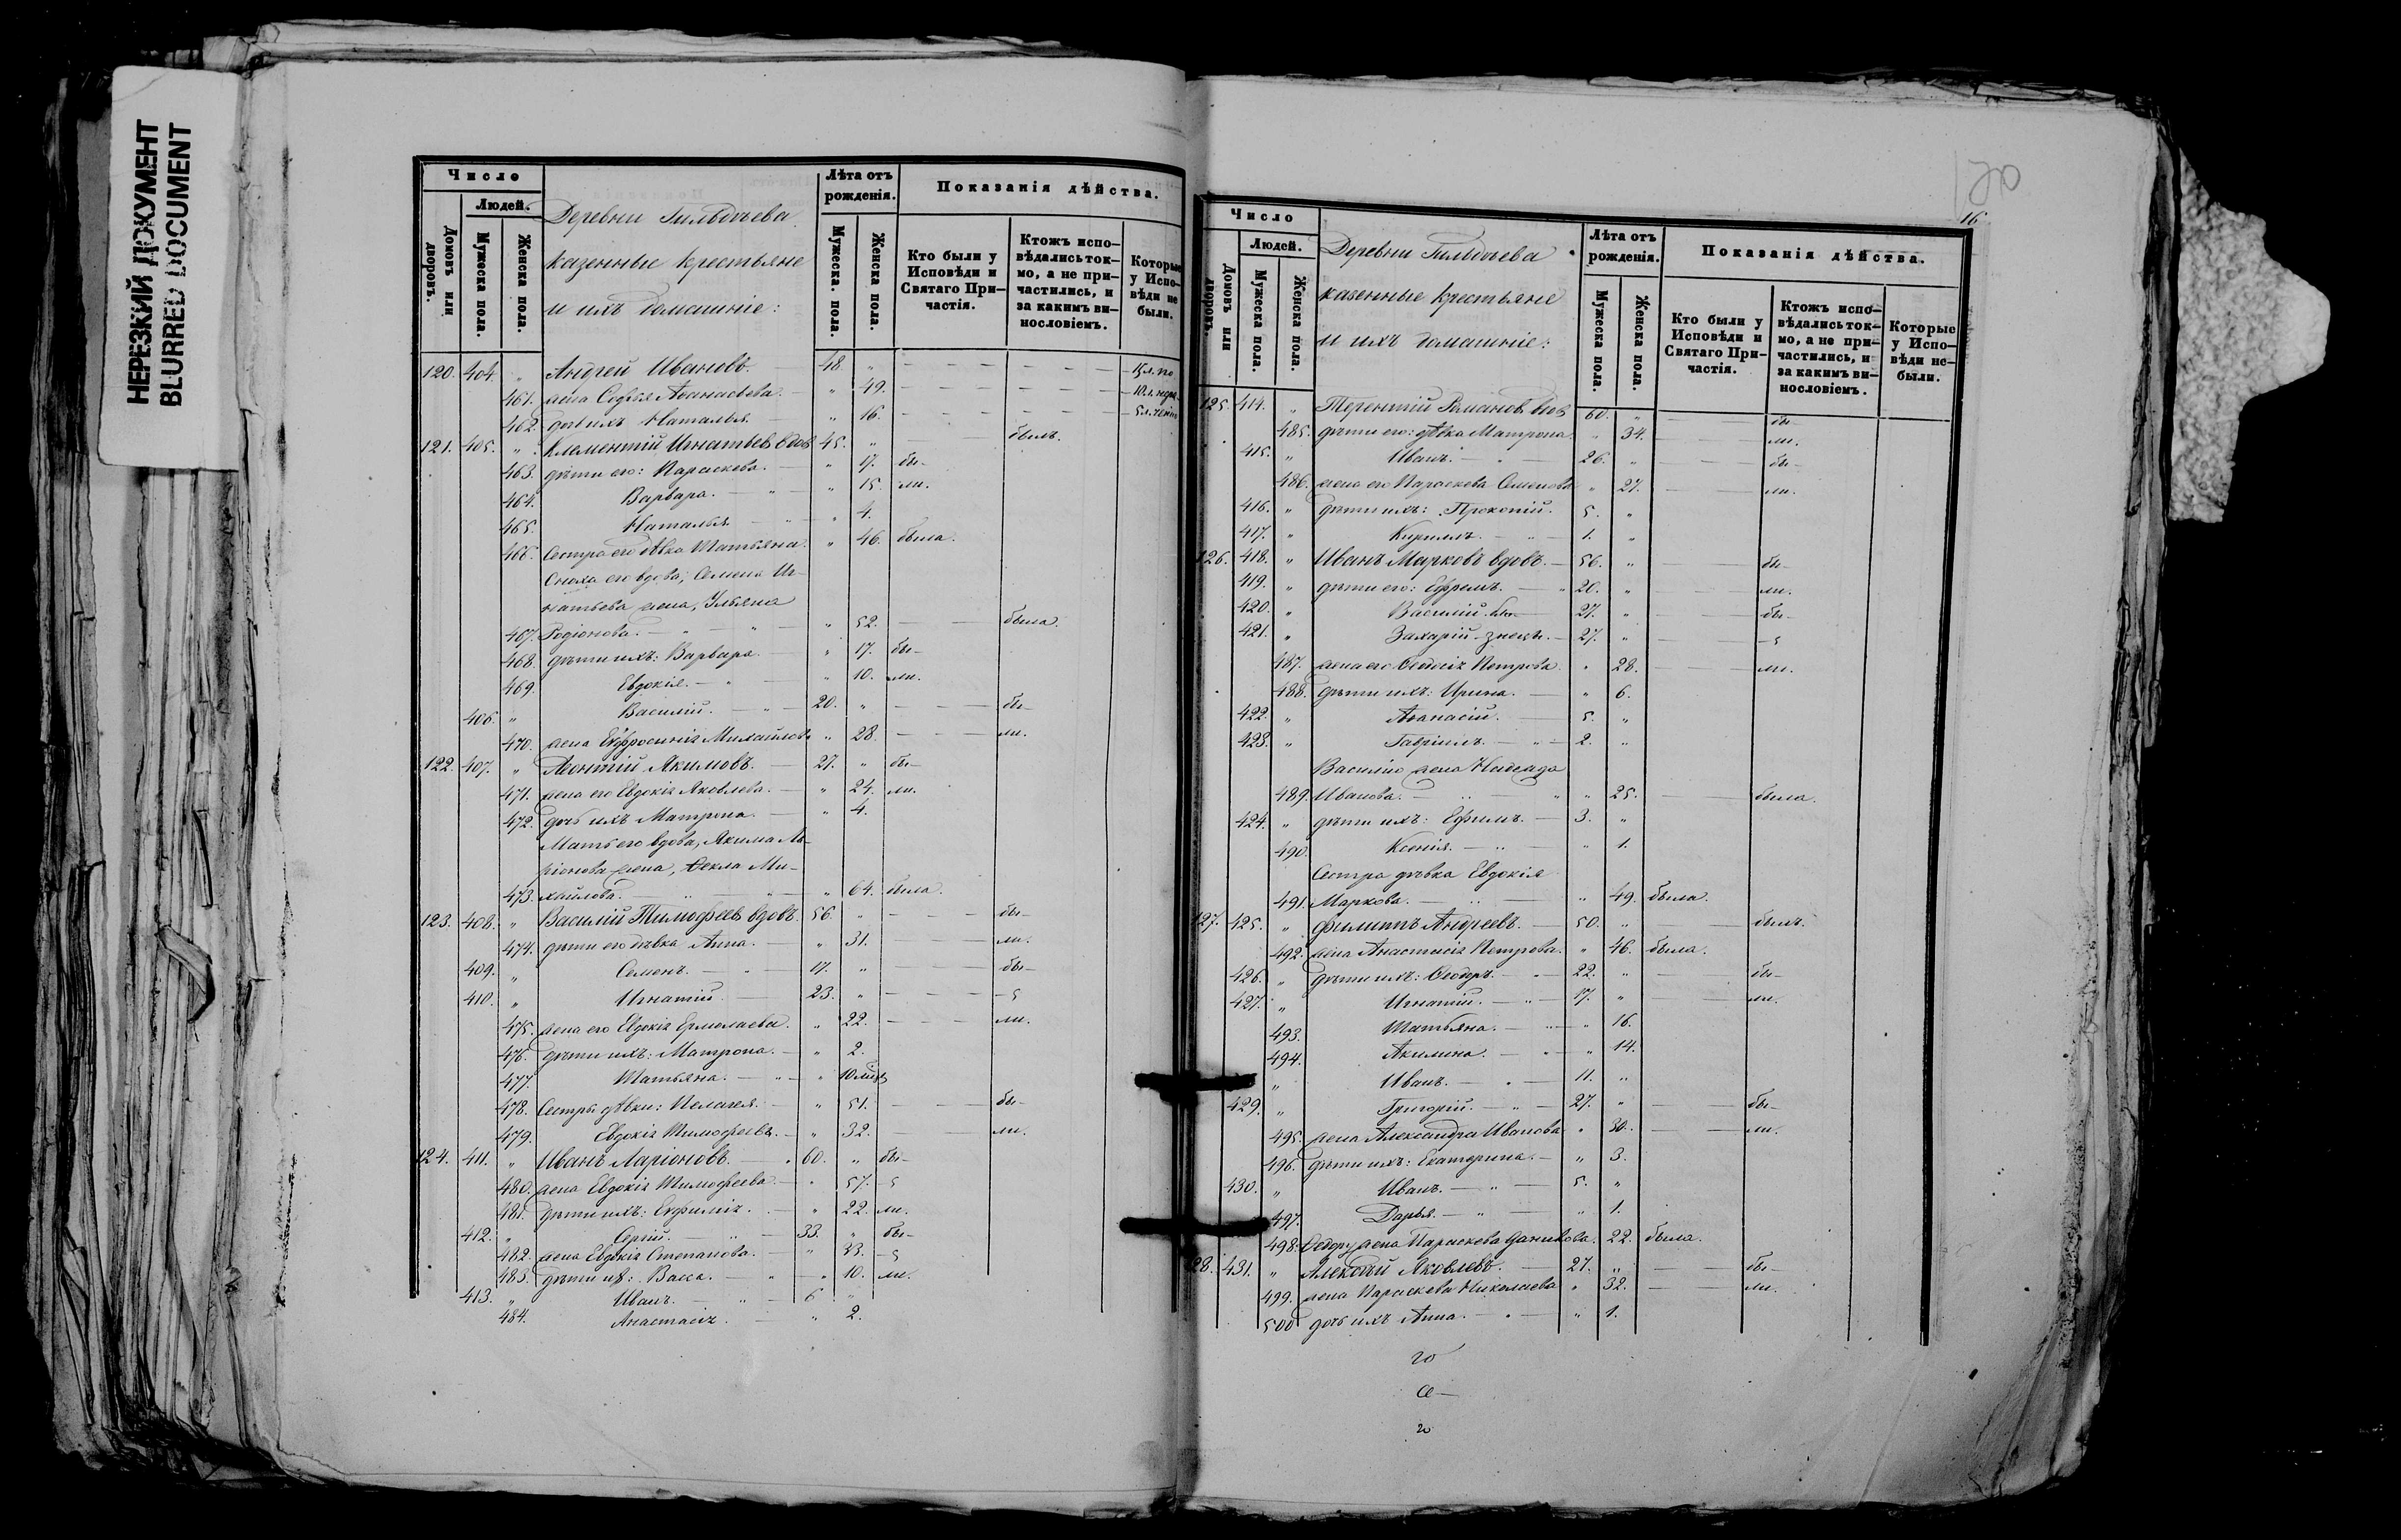 НЕРЕЗКИЙ ДОКУМЕНТ
BLURRED DOCUMENT
Число
Людей.
Домовъ или дворовъ.
Мужеска пола.
Женска пола.
Деревни Гильдѣева
казенные крестьяне
и ихъ домашніе:
Лѣта отъ рожденія.
Мужеска. пола.
Женска пола.
Показанія дѣйства.
Кто были у Исповѣди и Святаго Причастія.
Ктожъ исповѣдались токмо, а не причастились, и за какимъ винословіемъ.
Которые у Исповѣди не были.
120. 404. " Андрей Ивановъ. — 48. " — — — — 15 л. по
461. жена Софья Аѳанасьева. — " 49. — — — — 10 л. нерад.
462. дочь ихъ Наталья. " 16. — — — —
121. 405. " Климентій Игнатьевъ вдов. 45. " — — былъ.
463. дѣти его: Параскева. — " 17. бы-
464. Варвара. — " — " 15. ли.
465. Наталья — " — " 4.
466. Сестра его дѣвка Татьяна. " 46. была.
Сноха его вдова, Семена Иг-
натьева жена, Ульяна
467. Родіонова. — " — " — " 52. — — была.
468. дѣти ихъ: Варвара. — " 17. бы-
469. Евдокія. — " — " 10. ли.
406. " Василій. — " — 20. " — — — бы-
470. жена Евфросинія Михайлова " 28. — — ли.
122. 407. " Леонтій Якимовъ. — 27. " бы-
471. жена его Евдокія Яковлева. — " 24. ли.
472. дочь ихъ Матрона. — " 4.
Мать его вдова, Якима Ла-
ріонова жена, Ѳекла Ми-
473. хайлова. — " — " — " 64. была.
123. 408. " Василій Тимофеевъ вдовъ. 56. " — — — бы-
474. дѣти его дѣвка Анна. — " 31. — — ли.
409. " Семенъ. — " — 17. " — — бы-
410. " Игнатій. — 23. " — — — -
475. жена его Евдокія Ермолаева. " 22. — — ли.
476. дѣти ихъ: Матрона. — " 2.
477. Татьяна. — " — " 10 мѣс.
478. Сестры дѣвки: Пелагея. — " 51. — — бы-
479. Евдокія Тимофеевы. — " 32. — ли.
124. 411. " Иванъ Ларіоновъ. — " 60. " бы-
480. жена Евдокія Тимофеева. — " 57. -
481. дѣти ихъ: Евфимія. — " 22. ли.
412. " Сергій. — " — 33. " бы-
482. жена Евдокія Степанова. — " 33. -
483. дѣти ихъ: Васса. — " — " 10. ли.
413. " Иванъ. — " — 6 "
484. Анастасія. — " 2.
120
16
Число
Людей.
Домовъ или дворовъ.
Мужеска пола.
Женска пола.
Деревни Гильдѣева
казенные крестьяне
и ихъ домашніе:
Лѣта отъ рожденія.
Мужеска пола.
Женска пола.
Показанія дѣйства.
Кто были у Исповѣди и Святаго Причастія.
Ктожъ исповѣдались токмо, а не причастились, и за какимъ винословіемъ.
Которые у Исповѣди не были.
125. 414. " Терентій Романовъ вдов. 60. " — — бы-
485. дѣти его: дѣвка Матрона. " 34. — — ли.
415. " Иванъ. — " — 26. " — — бы-
486. жена его Параскева Семенова " 27. — — ли.
416. " дѣти ихъ: Прокопій. 5. "
417. " Кириллъ. — " — 1. "
126. 418. " Иванъ Марковъ вдовъ. — 56. " — бы-
419. " дѣти его: Ефремъ. — " 20. " — ли.
420. " Василій. — 27. " — бы-
421. " Захарій — 27. " — -
487. жена его Ѳеодосія Петрова. " 28. — — ли.
488. дѣти ихъ: Ирина. — " 6.
422. " Аѳанасій. — 5. "
423. " Гавріилъ. — " — 2. "
Василія жена Надежда
489. Иванова. — " — " " 25. — — была.
424. " дѣти ихъ: Ефимъ. — 3. "
490. Ксенія. — " — " 1.
Сестра дѣвка Евдокія
491. Маркова. — " — " 49. была.
127. 425. " Филиппъ Андреевъ. — 50. " — былъ.
492. жена Анастасія Петрова. " 46. была.
426. " дѣти ихъ: Ѳеодоръ. — " — 22. " — бы-
427. " Игнатій. — " — 17. " — ли.
493. Татьяна. — " — " 16.
494. Акилина. — " — " 14.
" Иванъ. — " — 11. "
429. " Григорій. — " — 27. " — бы-
495. жена Александра Иванова " 30. — — ли.
496. дѣти ихъ: Екатерина. — " 3.
430. " Иванъ. — " — 5. "
497. Дарья. — " — " 1.
498. Ѳедору жена Параскева Данилова. 22. была.
28. 431. " Алексѣй Яковлевъ. — 27. " — бы-
499. жена Параскева Николаева " 32. — ли.
500 дочь ихъ Анна. — " — " 1.